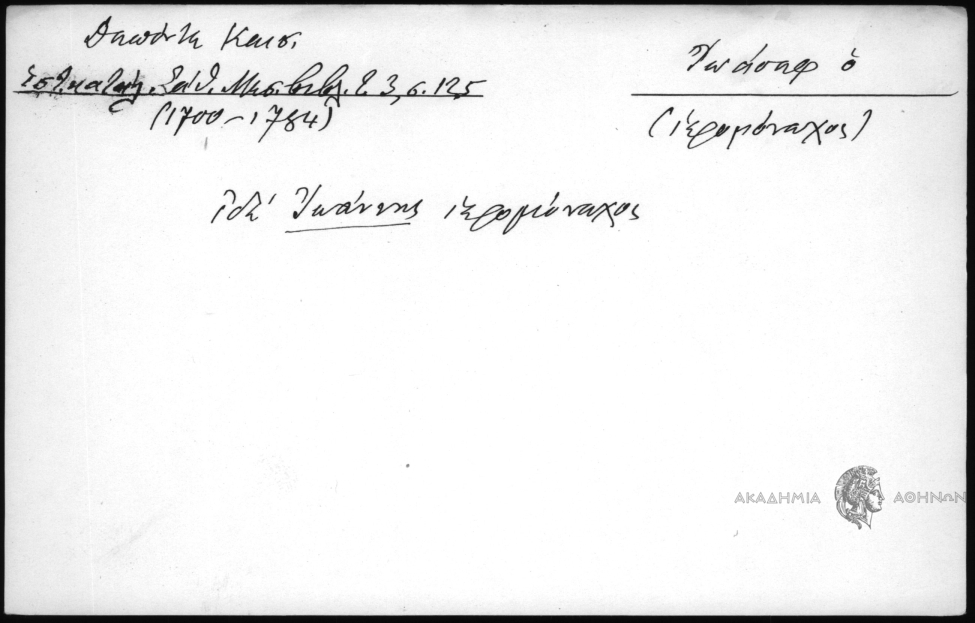 Δαπόντε Καισ.
Ἱστ. Κατάλ. Σάθ. Μεσ. Βιβλ. τ. 3, σ. 125
(1700-1784)
Ἰωάσαφ ὁ
(ἱερομόναχος)
ἰδέ Ἰωάννης ἱερομόναχος
ΑΚΑΔΗΜΙΑ ΑΘΗΝΩΝ